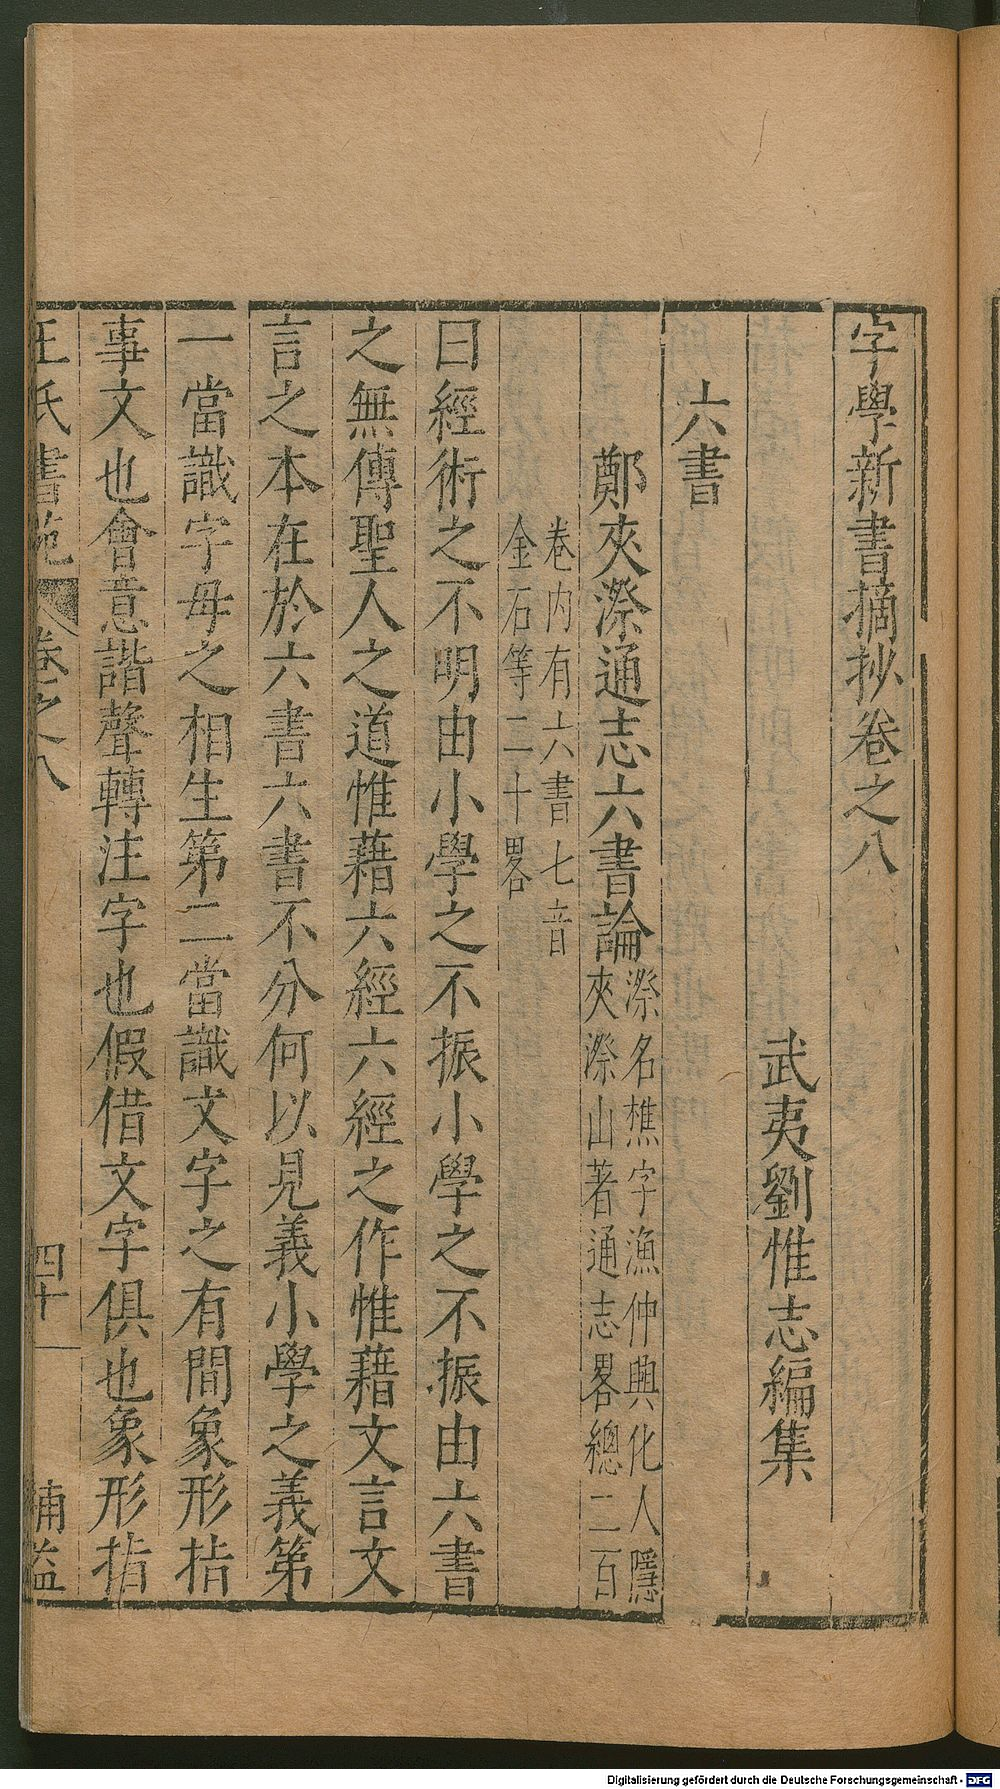 字學新書摘抄卷之八
武夷劉惟志編集
六書
鄭夾漈通志六書論漈名樵字漁仲興化人隱
夾漈山著通志畧總二百
卷内有六書七音
金石等二十畧
曰經術之不明由小學之不振小學之不振由六書
之無傳聖人之道惟藉六經六經之作惟藉文言文
言之本在於六書六書不分何以見義小學之義第
一當識字母之相生第二當識文字之有間象形指
事文也會意諧聲轉注字也假借文字俱也象形指
王氏書苑 卷之八 四十一 補益
Digitalisierung gefördert durch die Deutsche Forschungsgemeinschaft - DFG